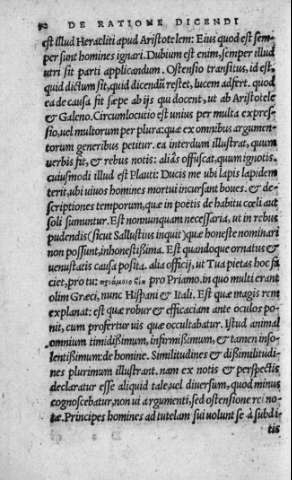 DE RATIONE DICENDI
est illud Heracliti apud Aristotelem: Eius quod est sem-
per sunt homines ignari. Dubium est enim, semper illud
utri sit parti applicandum. Ostensio transitus, id est,
quid dictum sit, quid dicendū restet, lucem adfert. quod
ea de causa fit sæpe ab ijs qui docent, ut ab Aristotele
& Galeno. Circumlocutio est unius per multa expres-
sio, uel multorum per plura: quæ ex omnibus argumen-
torum generibus petitur. ea interdum illustrat, quum
uerbis fit, & rebus notis: aliâs offuscat, quum ignotis.
cuiusmodi illud est Plauti: Ducis me ubi lapis lapidem
terit, ubi uiuos homines mortui incursant boues. & de-
scriptiones temporum, quæ in poëtis de habitu cœli aut
soli sumuntur. Est nonnunquam necessaria, ut in rebus
pudendis (sicut Sallustius inquit) quæ honeste nominari
non possunt, inhonestißima. Est quandoque ornatus &
uenustatis causa posita. alia officij, ut Tua pietas hoc fa
ciet, pro tu: pro Priamo. in quo multi erant
olim Græci, nunc Hispani & Itali. Est quæ magis rem
explanat: est quæ robur & efficaciam ante oculos po-
nit, cum profertur uis quæ occultabatur. Istud animal
omnium timidißimum, infirmißimum, & tamen inso-
lentißimum: de homine. Similitudines & dißimilitudi-
nes plurimum illustrant. nam ex notis & perspectis
declaratur esse aliquid tale, uel diuersum, quod minus
cognoscebatur, non ut argumenti, sed ostensione rei no-
tæ. Principes homines ad tutelam sui uolunt se à subdi-
tis